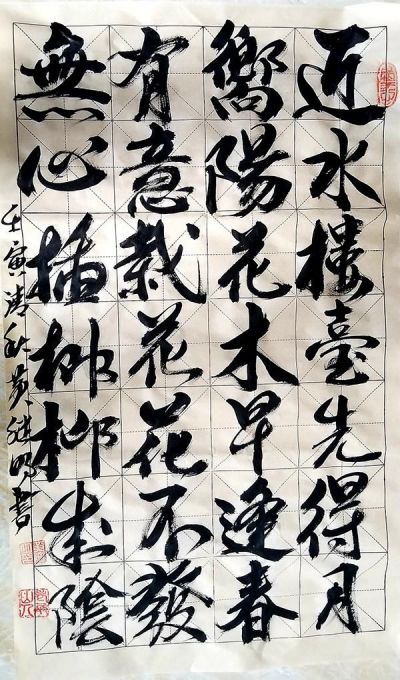 近水樓臺先得月
嚮陽花木早逢春
有意栽花花不發
無心插柳柳成陰
壬寅清秋黄继明書